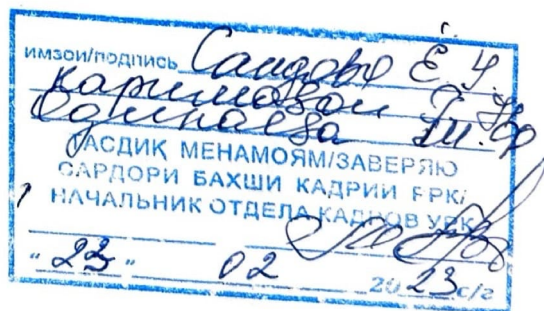 имзои/подпись Саидова Ё. У.
Каримзои
Одинаева Ш. Ф
ТАСДИҚ МЕНАМОЯМ/ЗАВЕРЯЮ
САРДОРИ БАХШИ КАДРИИ РРК/
НАЧАЛЬНИК ОТДЕЛА КАДРОВ УРК
"23" 02 2023 с/г